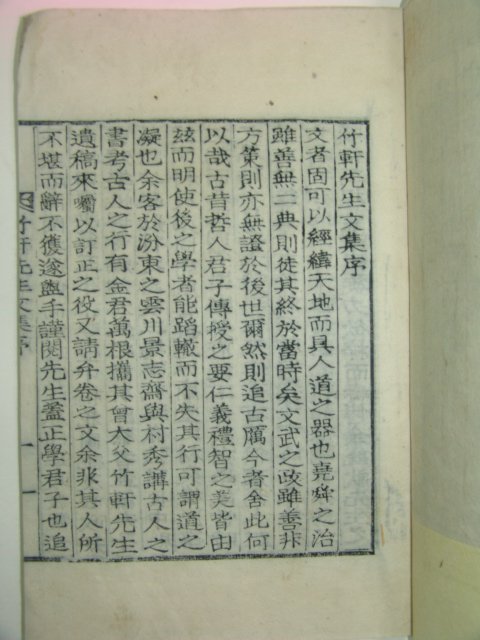 竹軒先生文集序
文者固可以經緯天地而具人道之器也堯舜之治
雖善無二典則徒其終於當時矣文武之政雖善非
方策則亦無證於後世爾然則追古厲今者舍此何
以哉古昔哲人君子傳授之要仁義禮智之美皆由
玆而明使後之學者能蹈轍而不失其行可謂道之
凝也余客於汾東之雲川景志齋與村秀講古人之
書考古人之行有金君萬根攜其曾大父竹軒先生
遺稿來囑以訂正之役又請弁卷之文余非其人所
不堪而辭不獲遂盥手謹閱先生蓋正學君子也追
竹軒先生文集序 一